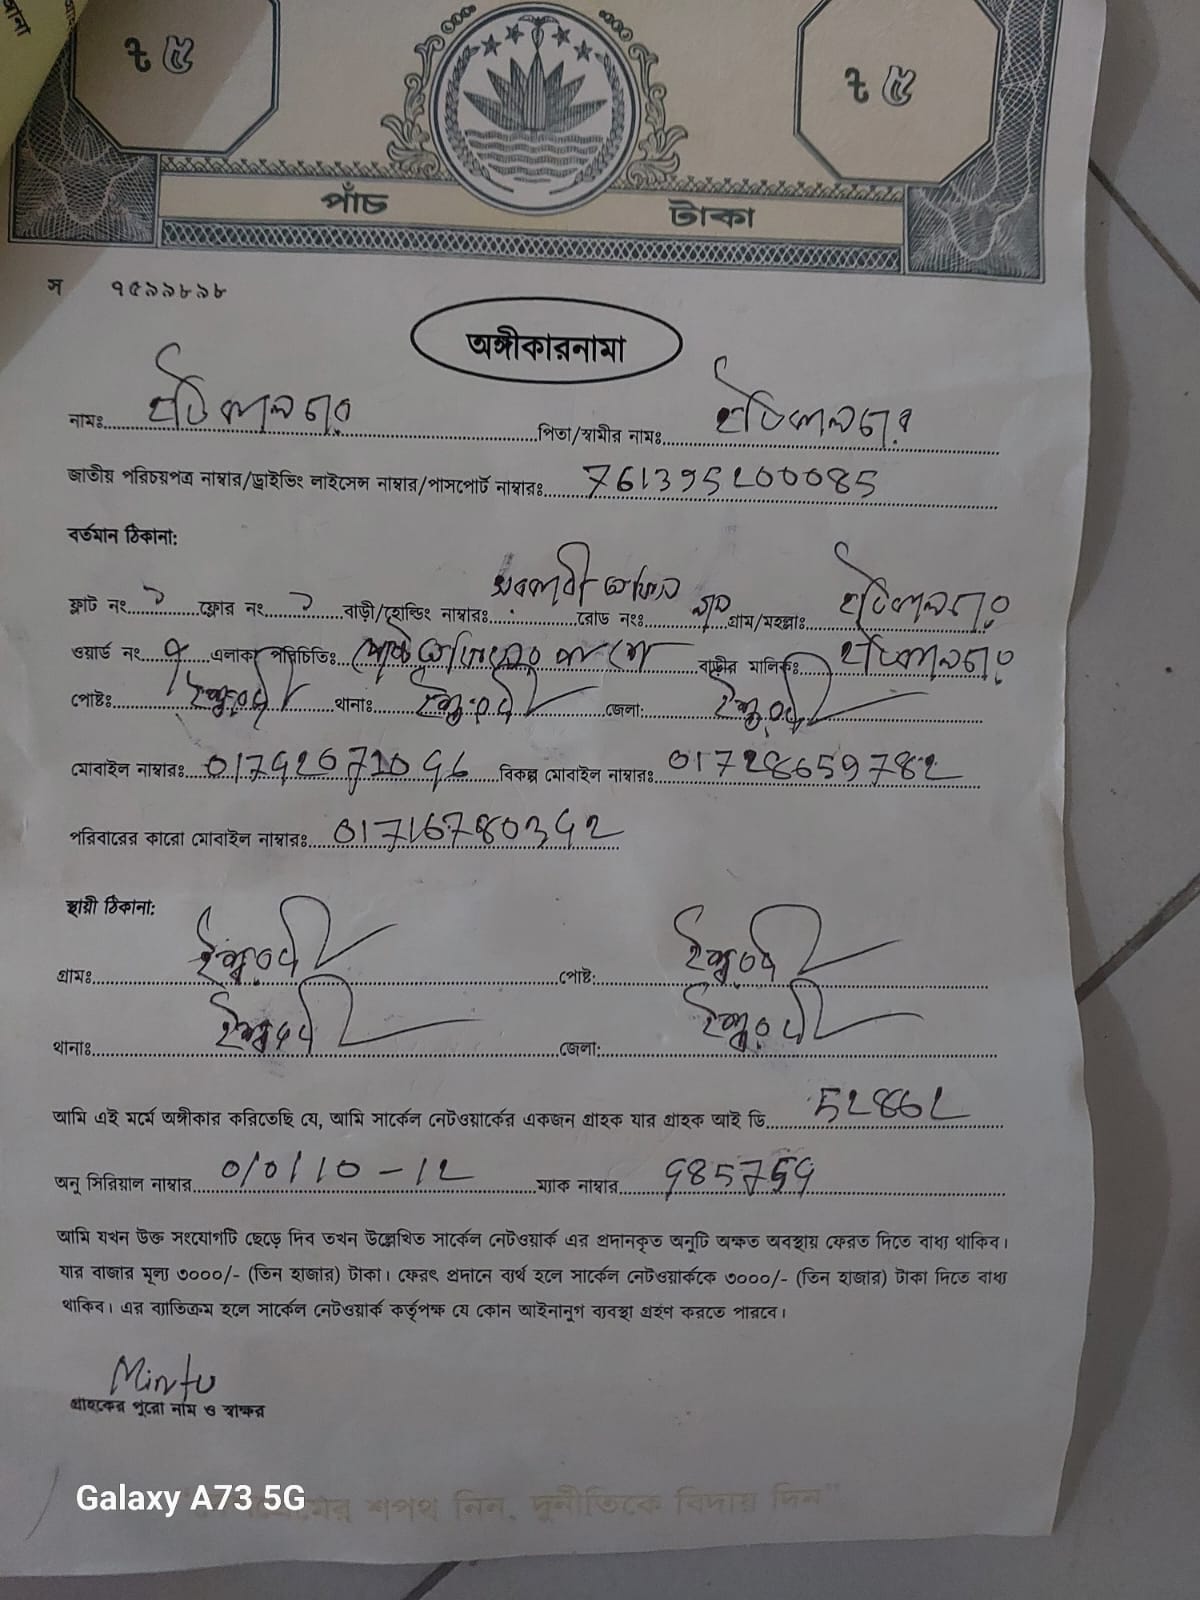 ৳ ৫ ৳ ৫
পাঁচ টাকা
স ৭৫৯৯৮৯৮
অঙ্গীকারনামা
নামঃ হর্টিকালচার পিতা/স্বামীর নামঃ হর্টিকালচার
জাতীয় পরিচয়পত্র নাম্বার/ড্রাইভিং লাইসেন্স নাম্বার/পাসপোর্ট নাম্বারঃ 761395200085
বর্তমান ঠিকানা:
ফ্লাট নং ফ্লোর নং বাড়ী/হোল্ডিং নাম্বারঃ সরকারী অফিস রোড নংঃ গ্রাম/মহল্লাঃ হর্টিকালচার
ওয়ার্ড নং এলাকা পরিচিতিঃ পোষ্ট অফিসের পাশে বাড়ীর মালিকঃ হর্টিকালচার
পোষ্টঃ ঈশ্বরদী থানাঃ ঈশ্বরদী জেলা: ঈশ্বরদী
মোবাইল নাম্বারঃ বিকল্প মোবাইল নাম্বারঃ 01728659782
পরিবারের কারো মোবাইল নাম্বারঃ 01716780342
স্থায়ী ঠিকানা:
গ্রামঃ ঈশ্বরদী পোষ্ট: ঈশ্বরদী
থানাঃ ঈশ্বরদী জেলা: ঈশ্বরদী
আমি এই মর্মে অঙ্গীকার করিতেছি যে, আমি সার্কেল নেটওয়ার্কের একজন গ্রাহক যার গ্রাহক আই ডি 52862
অনু সিরিয়াল নাম্বার 0/0/10-12 ম্যাক নাম্বার
আমি যখন উক্ত সংযোগটি ছেড়ে দিব তখন উল্লেখিত সার্কেল নেটওয়ার্ক এর প্রদানকৃত অনুটি অক্ষত অবস্থায় ফেরত দিতে বাধ্য থাকিব।
যার বাজার মূল্য ৩০০০/- (তিন হাজার) টাকা। ফেরৎ প্রদানে ব্যর্থ হলে সার্কেল নেটওয়ার্ককে ৩০০০/- (তিন হাজার) টাকা দিতে বাধ্য
থাকিব। এর ব্যাতিক্রম হলে সার্কেল নেটওয়ার্ক কর্তৃপক্ষ যে কোন আইনানুগ ব্যবস্থা গ্রহণ করতে পারবে।
Mintu
গ্রাহকের পুরো নাম ও স্বাক্ষর
Galaxy A73 5G
শপথ নিন, দুর্নীতিকে বিদায় দিন"